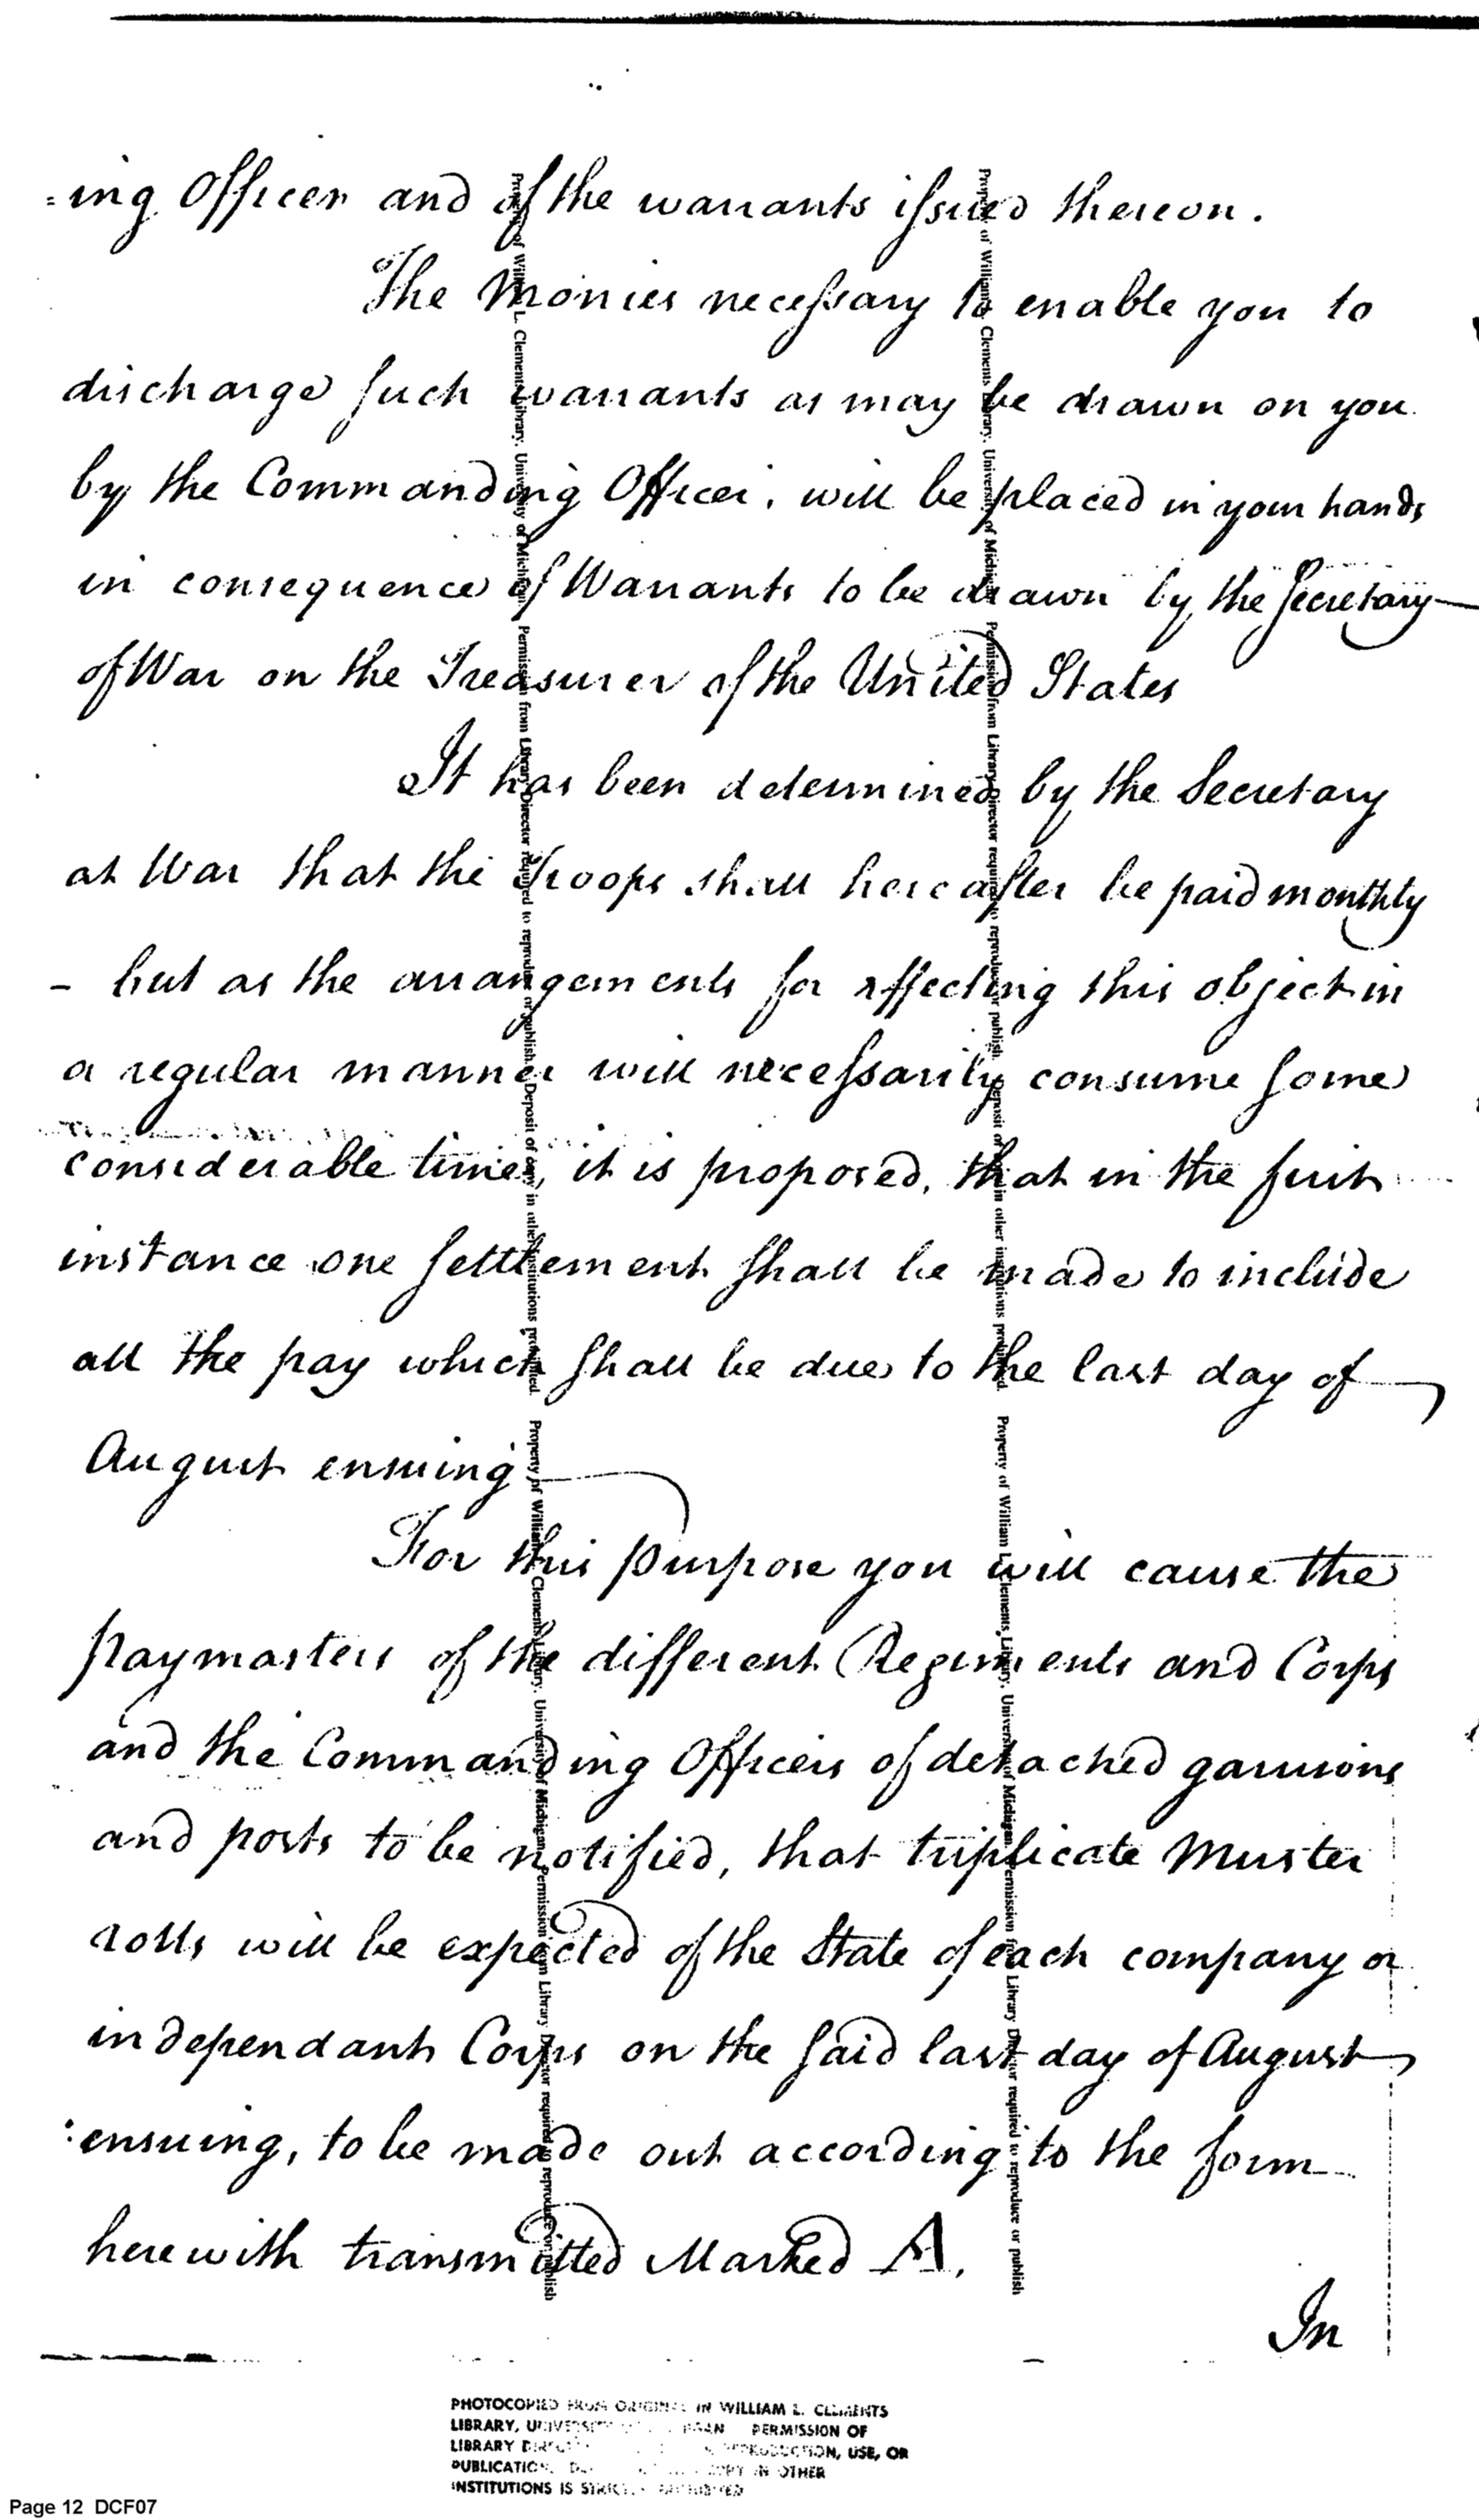 =ing Officer and of the warrants issued thereon.
The Monies necessary to enable you to
discharge such warrants as may be drawn on you
by the Commanding Officer, will be placed in your hands
in consequence of Warrants to be drawn by the Secretary
of War on the Treasurer of the United States
It has been determined by the Secretary
at War that the Troops shall hereafter be paid monthly
- but as the arrangements for effecting this object in
a regular manner will necessarily consume some
considerable time, it is proposed, that in the first
instance one settlement shall be made to include
all the pay which shall be due to the last day of
August ensuing
For this purpose you will cause the
paymasters of the different Regiments and Corps
and the Commanding Officers of detached garrisons
and posts to be notified, that triplicate Muster
rolls will be expected of the State of each company or
independant Corps on the said last day of August
ensuing, to be made out according to the form
herewith transmitted Marked A.
In
Property of William L. Clements Library, University of Michigan Permission from Library Director required to reproduce or publish. Deposit of copy in other institutions prohibited.
Property of William L. Clements Library, University of Michigan Permission from Library Director required to reproduce or publish
Property of William L. Clements Library, University of Michigan Permission from Library Director required to reproduce or publish. Deposit of copy in other institutions prohibited.
Property of William L. Clements Library, University of Michigan Permission from Library Director required to reproduce or publish
PHOTOCOPIED FROM ORIGINAL IN WILLIAM L. CLEMENTS
LIBRARY, UNIVERSITY PERMISSION OF
LIBRARY REPRODUCTION, USE, OR
PUBLICATION, COPY IN OTHER
INSTITUTIONS IS STRICTLY PROHIBITED
Page 12 DCF07